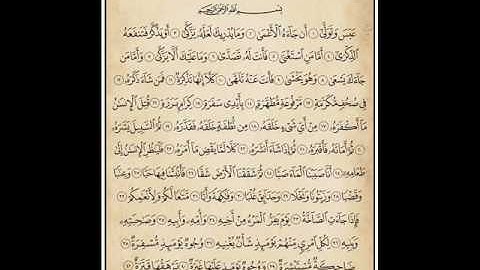 بِسْمِ اللَّهِ الرَّحْمَٰنِ الرَّحِيمِ
عَبَسَ وَتَوَلَّىٰ ١ أَن جَاءَهُ الْأَعْمَىٰ ٢ وَمَا يُدْرِيكَ لَعَلَّهُ يَزَّكَّىٰ ٣ أَوْ يَذَّكَّرُ فَتَنفَعَهُ
الذِّكْرَىٰ ٤ أَمَّا مَنِ اسْتَغْنَىٰ ٥ فَأَنتَ لَهُ تَصَدَّىٰ ٦ وَمَا عَلَيْكَ أَلَّا يَزَّكَّىٰ ٧ وَأَمَّا مَن
جَاءَكَ يَسْعَىٰ ٨ وَهُوَ يَخْشَىٰ ٩ فَأَنتَ عَنْهُ تَلَهَّىٰ ١٠ كَلَّا إِنَّهَا تَذْكِرَةٌ ١١ فَمَن شَاءَ ذَكَرَهُ ١٢
فِي صُحُفٍ مُّكَرَّمَةٍ ١٣ مَّرْفُوعَةٍ مُّطَهَّرَةٍ ١٤ بِأَيْدِي سَفَرَةٍ ١٥ كِرَامٍ بَرَرَةٍ ١٦ قُتِلَ الْإِنسَانُ
مَا أَكْفَرَهُ ١٧ مِنْ أَيِّ شَيْءٍ خَلَقَهُ ١٨ مِن نُّطْفَةٍ خَلَقَهُ فَقَدَّرَهُ ١٩ ثُمَّ السَّبِيلَ يَسَّرَهُ
٢٠ ثُمَّ أَمَاتَهُ فَأَقْبَرَهُ ٢١ ثُمَّ إِذَا شَاءَ أَنشَرَهُ ٢٢ كَلَّا لَمَّا يَقْضِ مَا أَمَرَهُ ٢٣ فَلْيَنظُرِ الْإِنسَانُ إِلَىٰ
طَعَامِهِ ٢٤ أَنَّا صَبَبْنَا الْمَاءَ صَبًّا ٢٥ ثُمَّ شَقَقْنَا الْأَرْضَ شَقًّا ٢٦ فَأَنبَتْنَا فِيهَا حَبًّا ٢٧ وَعِنَبًا
وَقَضْبًا ٢٨ وَزَيْتُونًا وَنَخْلًا ٢٩ وَحَدَائِقَ غُلْبًا ٣٠ وَفَاكِهَةً وَأَبًّا ٣١ مَّتَاعًا لَّكُمْ وَلِأَنْعَامِكُمْ ٣٢
فَإِذَا جَاءَتِ الصَّاخَّةُ ٣٣ يَوْمَ يَفِرُّ الْمَرْءُ مِنْ أَخِيهِ ٣٤ وَأُمِّهِ وَأَبِيهِ ٣٥ وَصَاحِبَتِهِ
وَبَنِيهِ ٣٦ لِكُلِّ امْرِئٍ مِّنْهُمْ يَوْمَئِذٍ شَأْنٌ يُغْنِيهِ ٣٧ وُجُوهٌ يَوْمَئِذٍ مُّسْفِرَةٌ ٣٨
ضَاحِكَةٌ مُّسْتَبْشِرَةٌ ٣٩ وَوُجُوهٌ يَوْمَئِذٍ عَلَيْهَا غَبَرَةٌ ٤٠ تَرْهَقُهَا قَتَرَةٌ ٤١